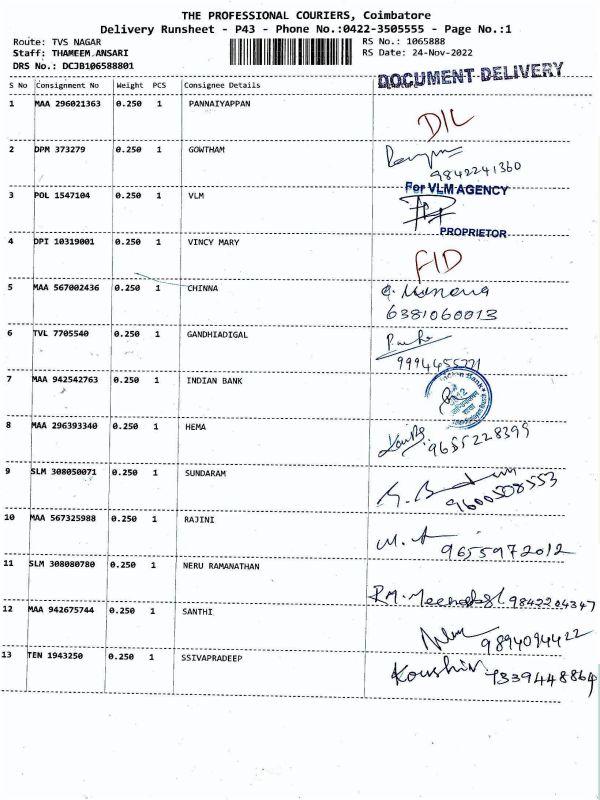 THE PROFESSIONAL COURIERS, Coimbatore
Delivery Runsheet - P43 - Phone No.:0422-3505555 - Page No.:1
Route: TVS NAGAR RS No.: 1065888
Staff: THAMEEM.ANSARI RS Date: 24-Nov-2022
DRS No.: DCJB106588801
DOCUMENT DELIVERY
S No Consignment No Weight PCS Consignee Details
1 MAA 296021363 0.250 1 PANNAIYAPPAN
D/L
2 DPM 373279 0.250 1 GOWTHAM
9842241360
For VLM AGENCY
3 POL 1547104 0.250 1 VLM
PROPRIETOR
4 DPI 10319001 0.250 1 VINCY MARY
F/D
5 MAA 567002436 0.250 1 CHINNA
6381060013
6 TVL 7705540 0.250 1 GANDHIADIGAL
9994455221
7 MAA 942542763 0.250 1 INDIAN BANK
Indian Bank
8 MAA 296393340 0.250 1 HEMA
9655228399
9 SLM 308050071 0.250 1 SUNDARAM
9600508553
10 MAA 567325988 0.250 1 RAJINI
9655972012
11 SLM 308080780 0.250 1 NERU RAMANATHAN
RM. 9842204347
12 MAA 942675744 0.250 1 SANTHI
9894094422
13 TEN 1943250 0.250 1 SSIVAPRADEEP
Koushik 7339448864